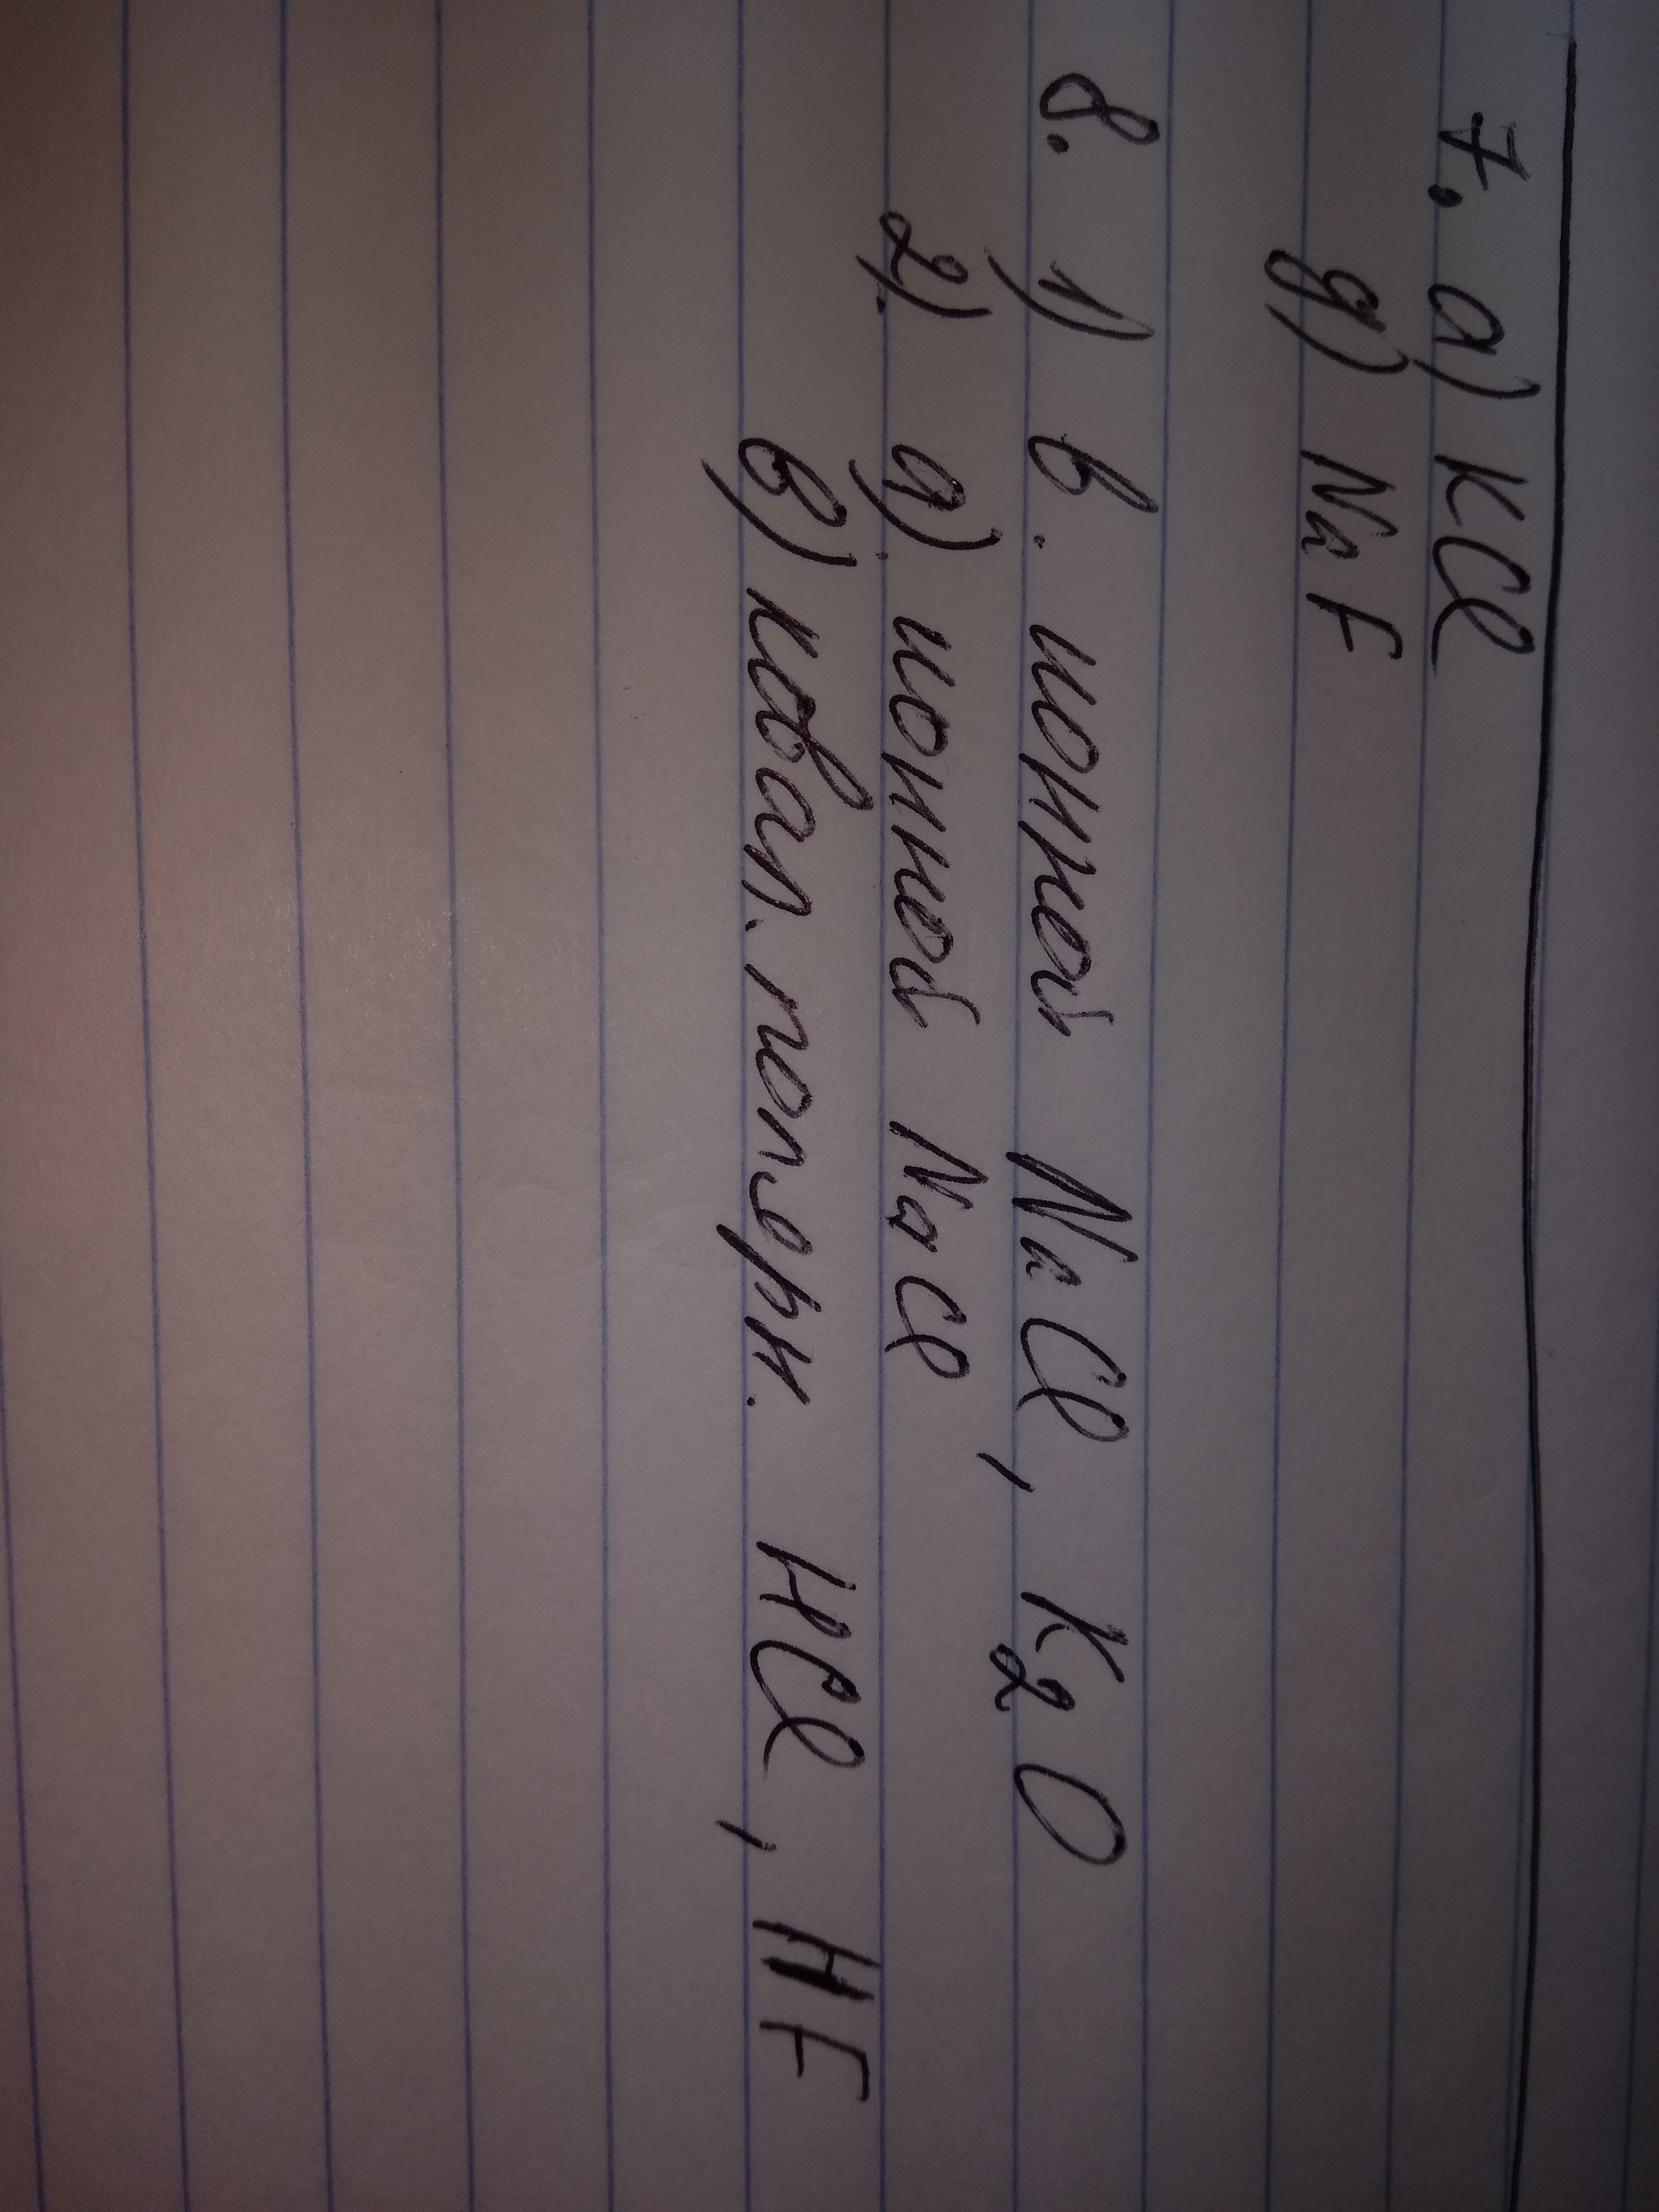 7. а) KCl
д) NaF
8. 1) в. ионной NaCl, K₂O
2) а) ионной NaCl
в) ковал. полярн. HCl, HF